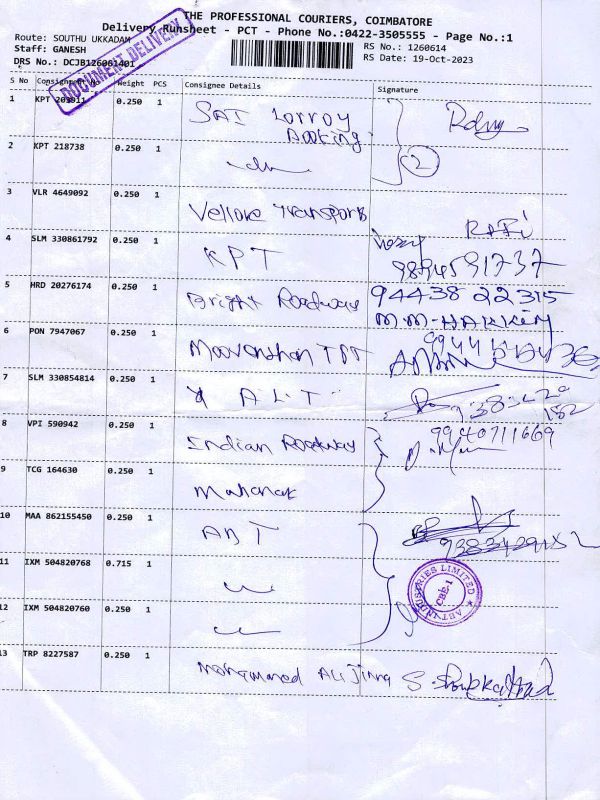 THE PROFESSIONAL COURIERS, COIMBATORE
Delivery Runsheet - PCT - Phone No.:0422-3505555 - Page No.:1
Route: SOUTHU UKKADAM
Staff: GANESH
DRS No.: DCJB126061401
RS No.: 1260614
RS Date: 19-Oct-2023
DOCUMENT DELIVERY
S No Consignment No Weight PCS Consignee Details Signature
1 KPT 203911 0.250 1 SAI Lorroy
Booking
2 KPT 218738 0.250 1
2
3 VLR 4649092 0.250 1 Vellore Transports
RAFi
4 SLM 330861792 0.250 1 KPT
9894591737
5 HRD 20276174 0.250 1 Bright Roadways 94438 22315
M.M-HAKKIM
6 PON 7947067 0.250 1
7 SLM 330854814 0.250 1 ALT
8 VPI 590942 0.250 1 Indian Roadway 9940711669
9 TCG 164630 0.250 1
10 MAA 862155450 0.250 1 ABT
11 IXM 504820768 0.715 1
ABT INDUSTRIES LIMITED
12 IXM 504820760 0.250 1
13 TRP 8227587 0.250 1 Mohammed Ali Jinna